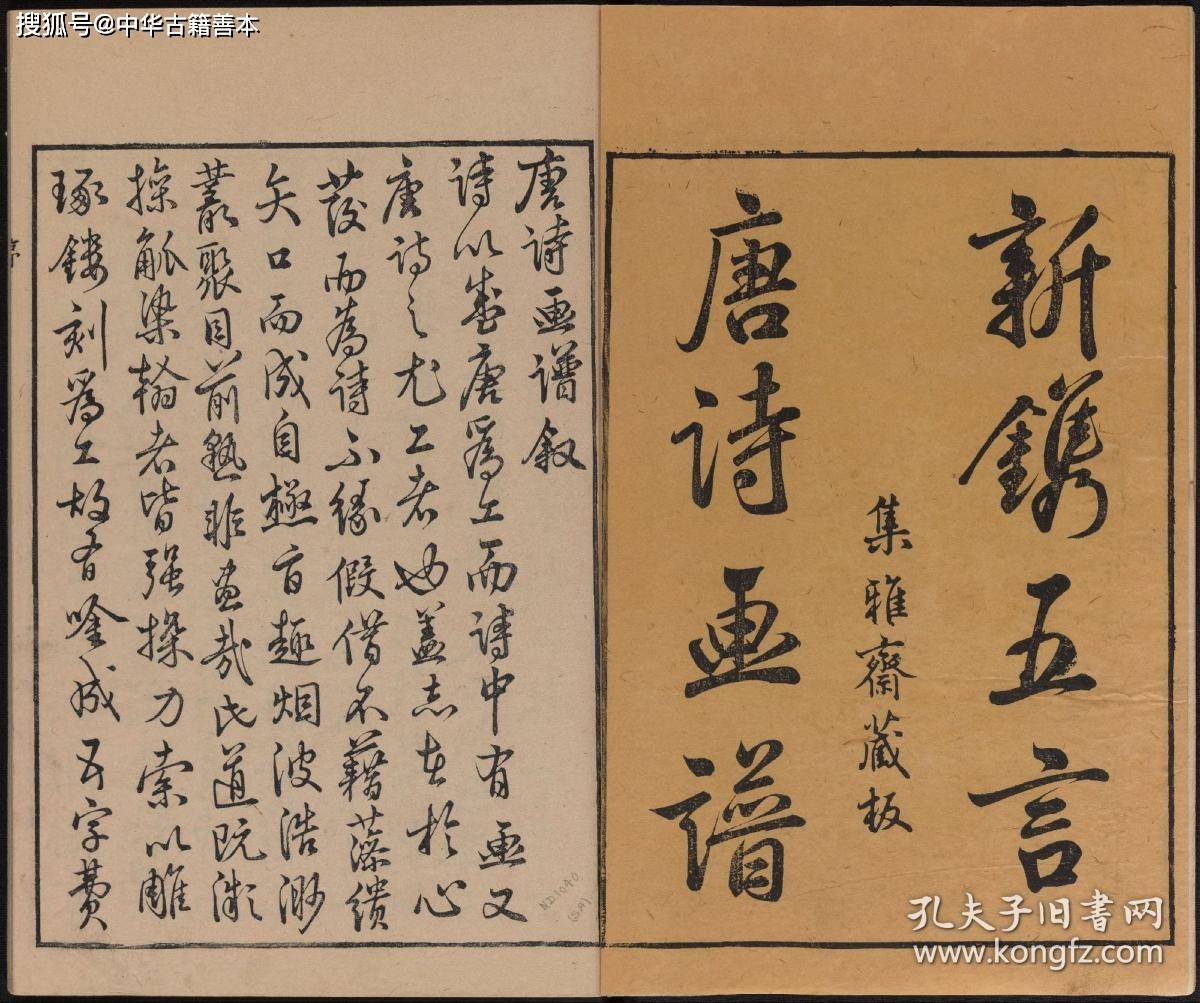 搜狐号@中华古籍善本
新鐫五言
集雅齋藏板
唐詩畫譜
唐詩畫譜叙
詩以盛唐爲工而詩中有畫又
唐詩之尤工者也蓋志在於心
發而為詩不緣假借不藉藻繢
矢口而成自極旨趣烟波浩渺
叢聚目前孰非畫哉氐道既漓
操觚染翰者皆强操刀索以雕
琢鏤刻爲工故有唫成五字費
序
ND1040
孔夫子旧书网
www.kongfz.com